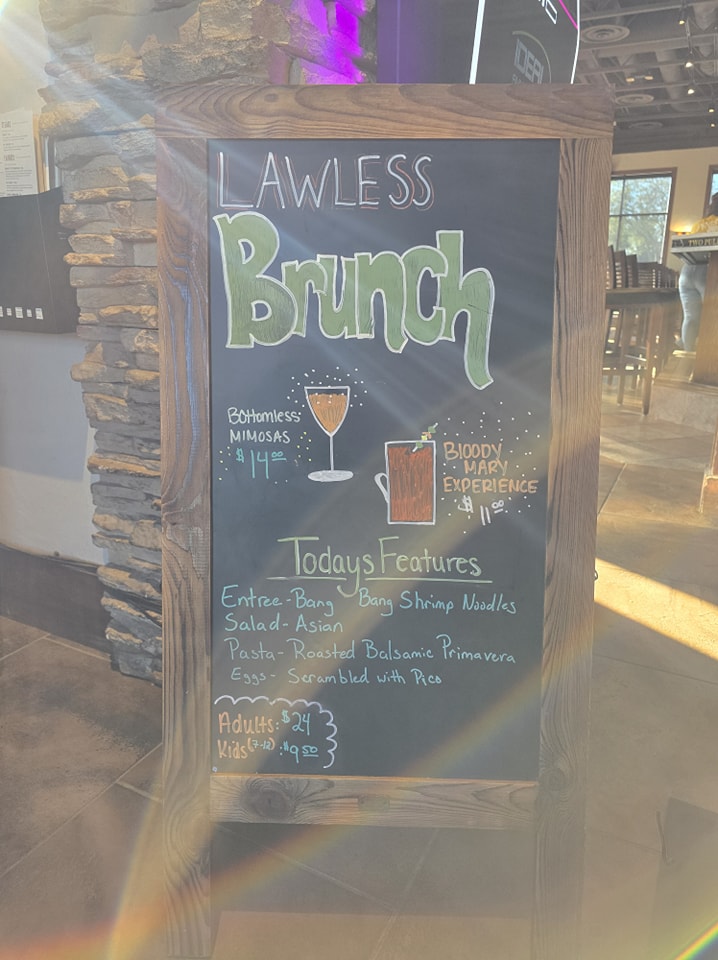 LAWLESS
Brunch
Bottomless
MIMOSAS
$14.00
BlOODY
MARY
EXPERIENCE
$11.00
Todays Features
Entree-Bang Bang Shrimp Noodles
Salad-Asian
Pasta-Roasted Balsamic Primavera
Eggs-Scrambled with Pico
Adults:$24
Kids(7-12):$9.50